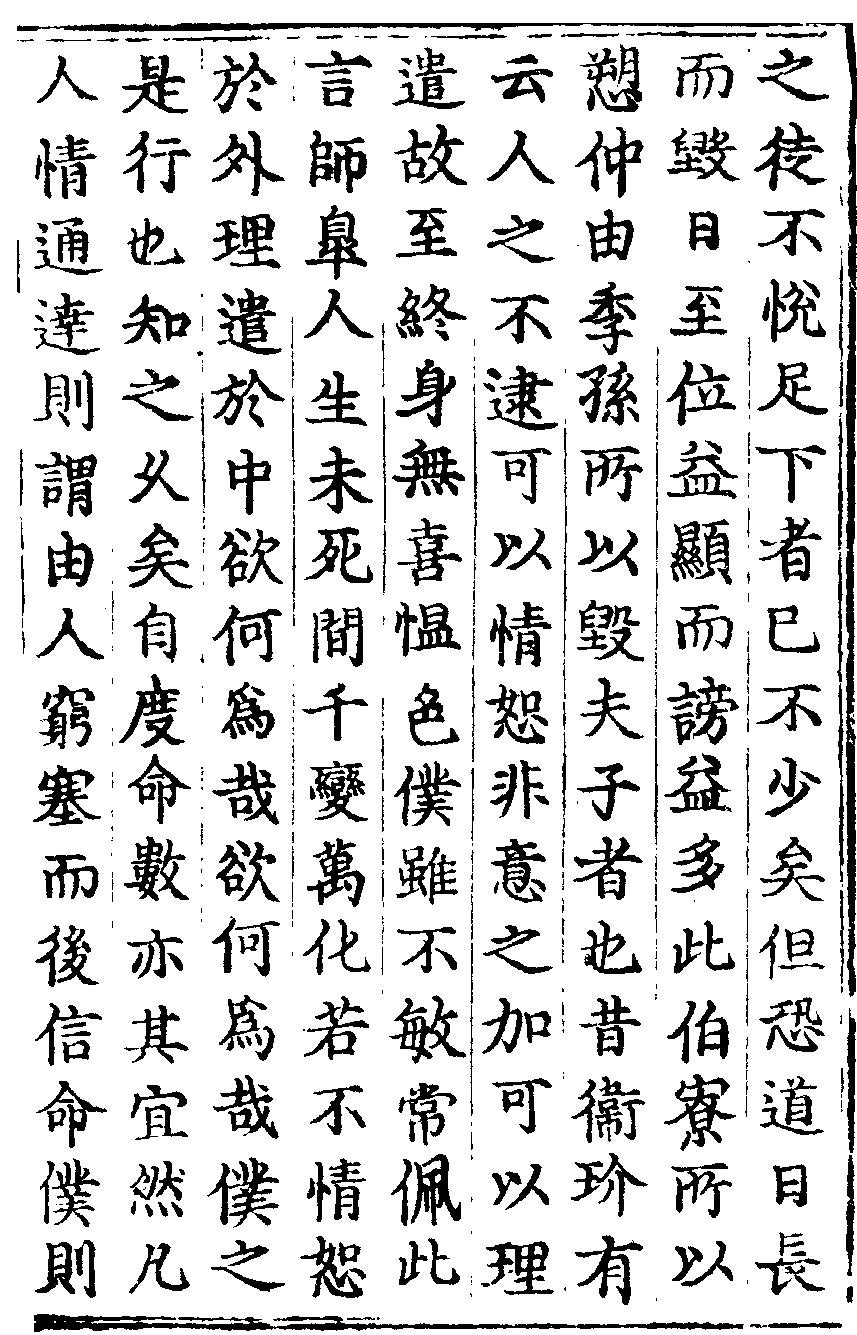 之徒不悅足下者已不少矣但恐道日長
而毀日至位益顯而謗益多此伯寮所以
愬仲由季孫所以毀夫子者也昔衞玠有
云人之不逮可以情恕非意之加可以理
遣故至終身無喜愠色僕雖不敏常佩此
言師皐人生未死間千變萬化若不情恕
於外理遣於中欲何爲哉欲何爲哉僕之
是行也知之乆矣自度命數亦其宜然凡
人情通達則謂由人窮塞而後信命僕則